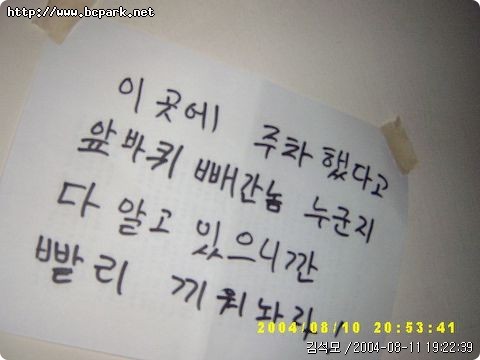 http://www.bcpark.net
이곳에 주차했다고
앞바퀴 빼간놈 누군지
다 알고 있으니깐
빨리 끼워놔라!
2004/08/10 20:53:41
김석모 / 2004-08-11 19:22:39